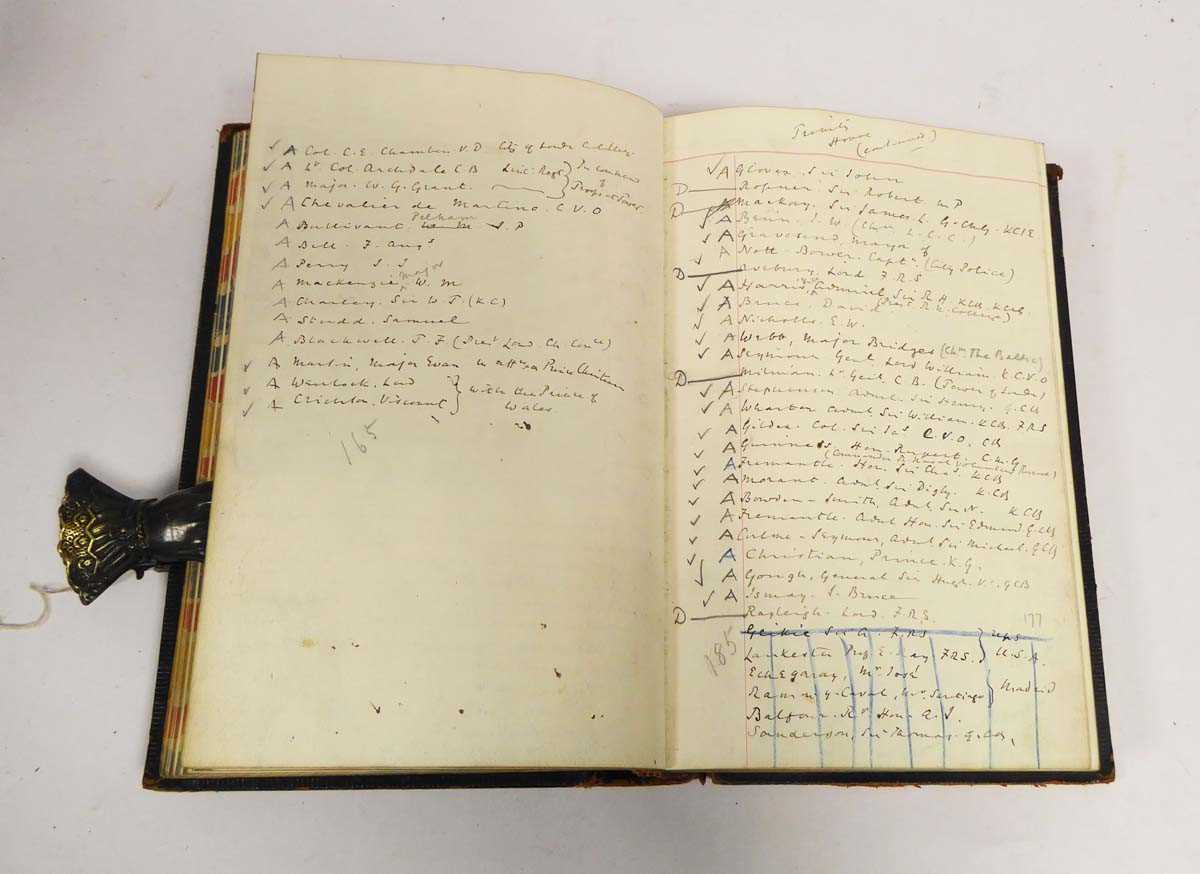 ✓ A Col. C. E. Chambers. V. D. City of London Artillery
✓ A Lt. Col. Archdale C B Linc: Regt } In command
✓ A Major. W. G. Grant. —— } of Troops at Tower
✓ A Chevalier de Martino. C. V. O
A Bullivant. Pelham J. P
A Bell. F. Augs
A Perry J. J
A Mackenzie, Major W. M
A Charley. Sir W. T (K. C)
A Studd. Samuel
A Blackwell. T. F
✓ A Martin, Major Evan in attce on Prince Christian
✓ A Wenlock. Lord } with the Prince of
✓ A Crichton. Viscount } Wales
165
Trinity
House
(continued)
✓ A Glover. Sir John
D — Ropner Sir Robert MP
D — Mackay. Sir James L. G. KCIE
✓ A Benn. J. W. (Chn L. C. C.)
✓ A Gravesend, Mayor of
✓ A Nott-Bower. Captn (City Police)
D — Avebury. Lord F. R. S
✓ A Harris, Admiral Sir R. H. KCB. KCMG
✓ A Bruce. David
✓ A Nicholls. E. W.
✓ A Webb, Major Bridges (Chn. The Baltic)
✓ A Seymour Genl. Lord William. K. C. V. O
D — Milman. Lt. Genl. C. B. (Tower of London)
✓ A Stephenson Adml. Sir Henry. GCB
✓ A Wharton Adml Sir William. KCB. FRS
✓ A Gildea. Col. Sir Jas C. V. O. CB
✓ A Guinness, Hon. Rupert. C. M. G
(Commander R. Naval Volunteer Reserve)
✓ A Fremantle. Hon. Sir Chas. KCB
✓ A Morant. Adml Sir Digby. KCB
✓ A Bowden-Smith, Adml Sir N. KCB
✓ A Fremantle. Adml Hon. Sir Edmund GCB
✓ A Culme-Seymour, Adml Sir Michael. GCB
✓ A Christian, Prince. K. G.
✓ A Gough, General Sir Hugh. V. C. GCB
✓ A Ismay. J. Bruce
D — Rayleigh. Lord. F. R. S.
177
185
Geikie Sir A. FRS
Lankester Prof. E. Ray FRS. } U. S. A.
Echegaray, Mr José
Ramon y Cajal, Mr. Santiago } Madrid
Balfour. Rt Hon. A. J.
Sanderson, Sir Thomas. GCB,